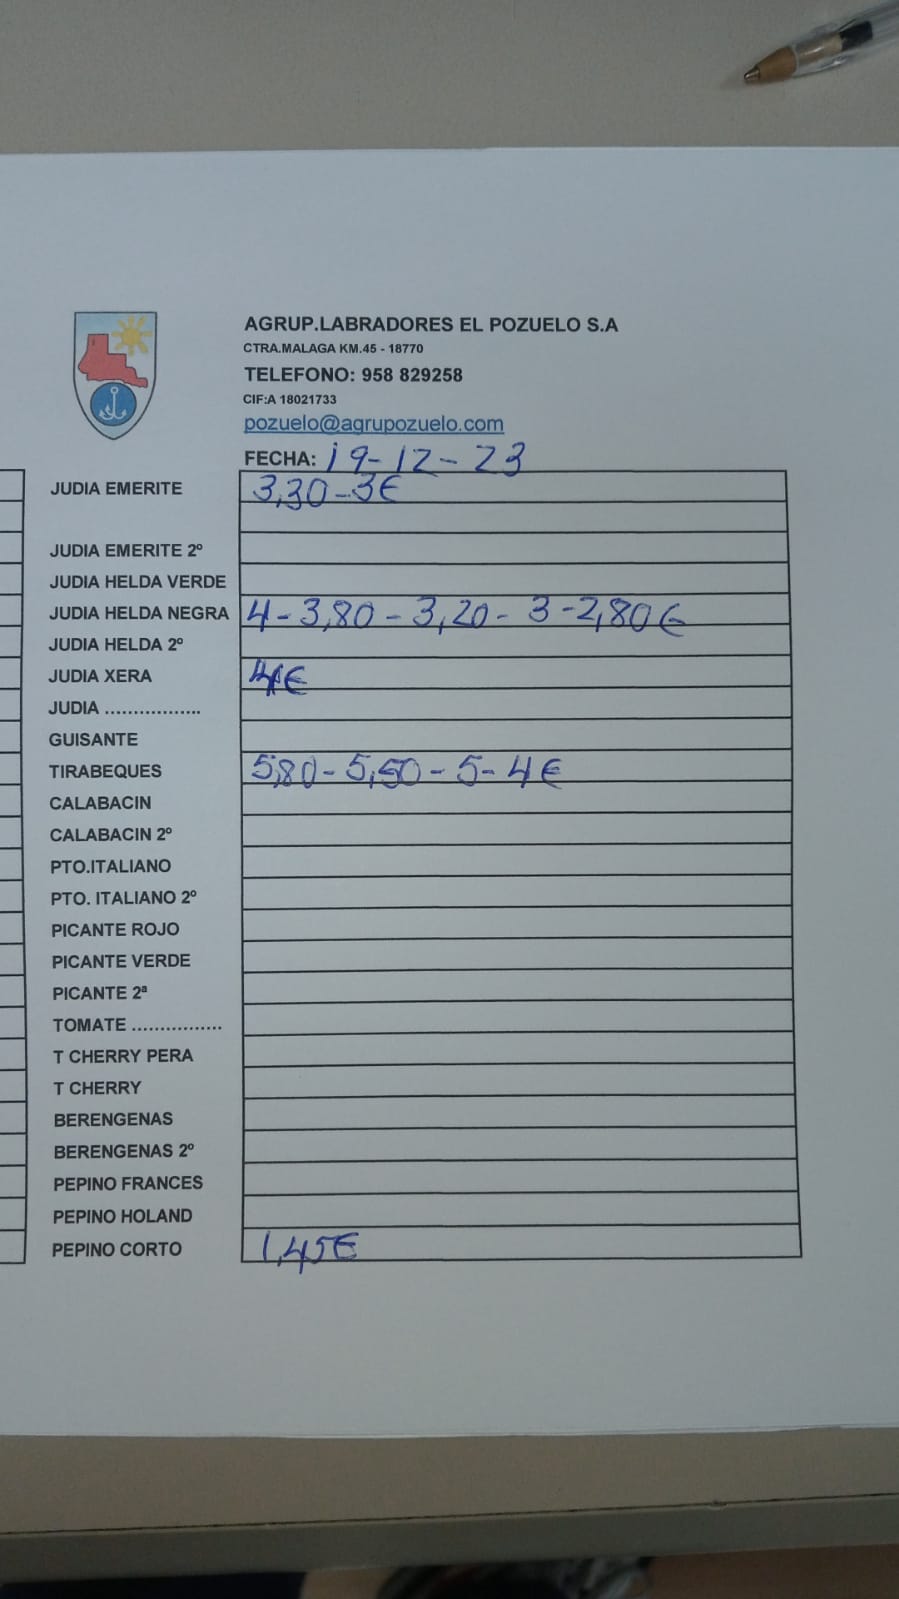 AGRUP.LABRADORES EL POZUELO S.A
CTRA.MALAGA KM.45 - 18770
TELEFONO: 958 829258
CIF:A 18021733
pozuelo@agrupozuelo.com
FECHA: 19-12-23
JUDIA EMERITE 3,30-3€
JUDIA EMERITE 2º
JUDIA HELDA VERDE
JUDIA HELDA NEGRA 4-3,80-3,20-3-2,80€
JUDIA HELDA 2º
JUDIA XERA 4€
JUDIA .................
GUISANTE
TIRABEQUES 5,80-5,50-5-4€
CALABACIN
CALABACIN 2º
PTO.ITALIANO
PTO. ITALIANO 2º
PICANTE ROJO
PICANTE VERDE
PICANTE 2ª
TOMATE ................
T CHERRY PERA
T CHERRY
BERENGENAS
BERENGENAS 2º
PEPINO FRANCES
PEPINO HOLAND
PEPINO CORTO 1,45€